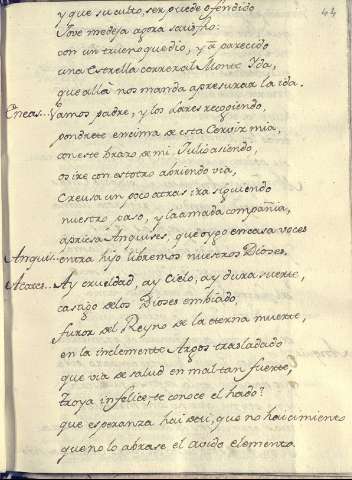 44
y que su culto, ser puede ofendido
Jove me dexa agora satisfho:
con un trueno que dio, y ā parecido
una Estrella correr al Monte Ida,
que alla nos manda apresurar la ida.
Eneas... Vamos padre, y los Lares recogiendo,
pondrete encima de esta Cerviz mia,
con este brazo de mi Julio asiendo,
os ire con estotro abriendo via,
Creusa un poco atras ira siguiendo
nuestro paso, y la amada compañia,
apriesa Anquises, que oygo en casa voces
Anquis.. entra hijo libremos nuestros Dioses.
Acates.. Ay crueldad, ay Cielo, ay dura suerte,
castigo de los Dioses embiado,
furor del Reyno de la eterna muerte,
en la inclemente Argos trasladado
que via de salud en mal tan fuerte,
Troya infelice, te conoce el hado?
que esperanza hai de ti, que no hai cimiento
que no lo abrase el avido elemento